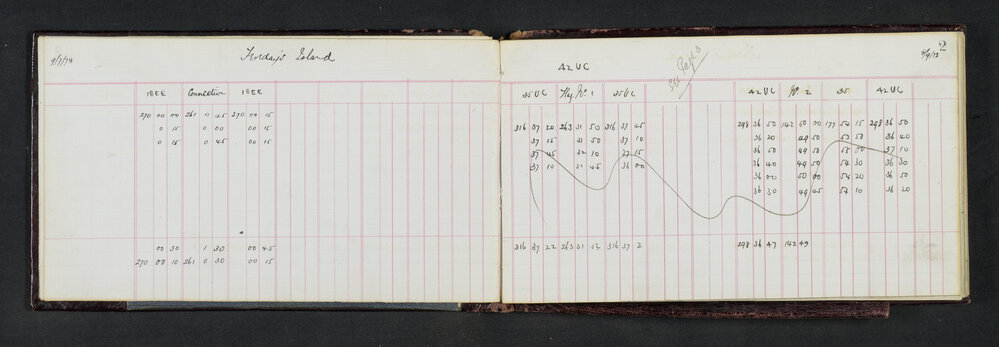 9/7/78 Friday's Island
18EE Connection 18EE
270 00 00 261 0 45 270 00 15
0 15 0 00 0 15
0 15 0 45 00 15
00 30 1 30 00 45
270 00 10 261 0 30 00 15
2
A2UC
See Page 3
35UC Flag No. 1 35UC
42UC No 2 35 A2UC
316 37 20 263 31 50 316 37 45
37 15 31 50 37 10
37 45 32 10 37 15
37 10 31 45 36 00
316 37 22 263 31 54 316 37 2
298 36 50 142 50 00 177 54 15 298 36 50
36 20 49 50 53 50 36 40
36 50 49 50 55 00 37 10
36 40 49 50 54 30 36 30
36 00 50 00 54 20 36 50
36 30 49 45 54 10 36 20
298 36 47 142 49